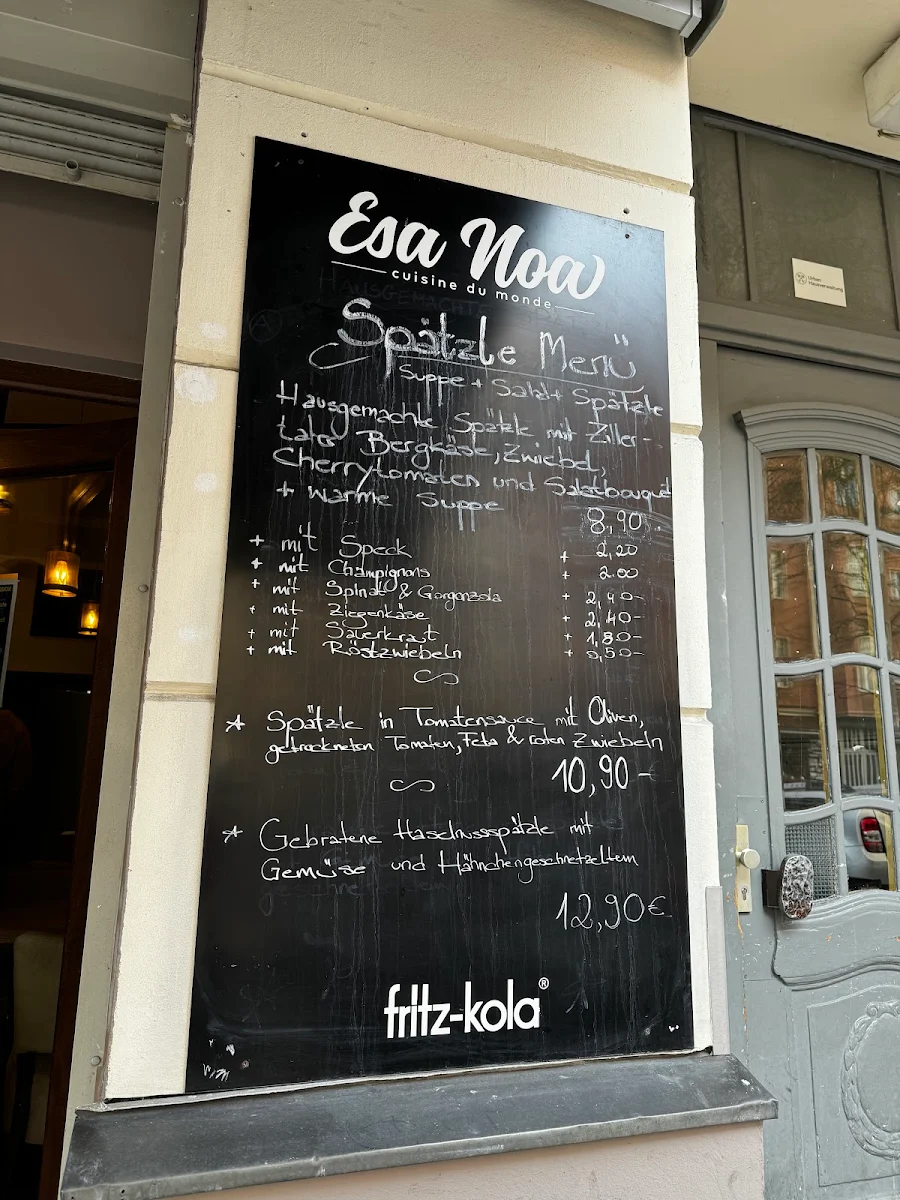 Esa Noa
cuisine du monde
Spätzle Menü
Suppe + Salat + Spätzle
Hausgemachte Spätzle mit Ziller-
taler Bergkäse, Zwiebel,
Cherrytomaten und Salatbouquet
+ warme Suppe
8,90
+ mit Speck + 2,20
+ mit Champignons + 2.00
+ mit Spinat & Gorgonzola + 2,40-
+ mit Ziegenkäse + 2,40-
+ mit Sauerkraut + 1,80-
+ mit Röstzwiebeln + 0,50-
* Spätzle in Tomatensauce mit Oliven,
getrockneten Tomaten, Feta & roten Zwiebeln
10,90-
* Gebratene Haselnussspätzle mit
Gemüse und Hähnchengeschnetzeltem
12,90€
fritz-kola®
Urban
Hausverwaltung